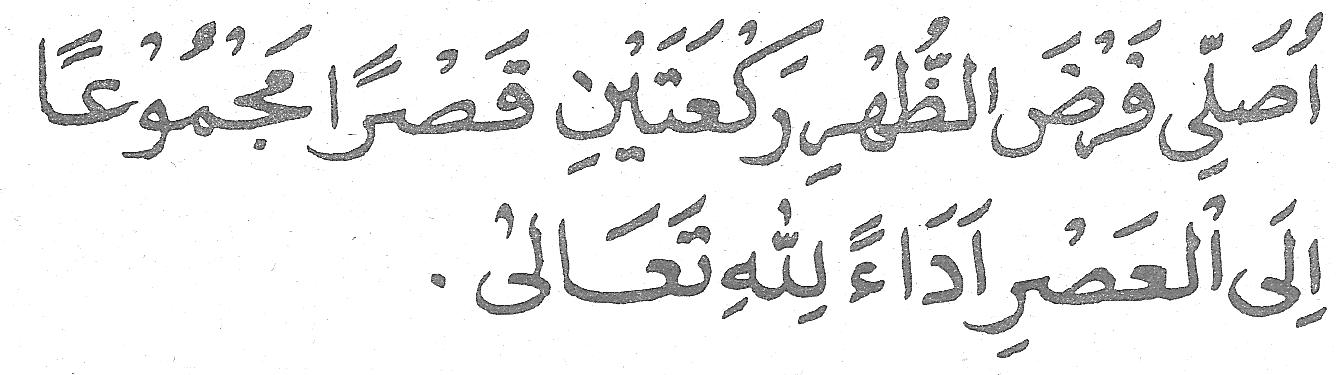 اُصَلِّى فَرْضَ الظُّهْرِ رَكْعَتَيْنِ قَصْرًا مَجْمُوْعًا
اِلَى الْعَصْرِ اَدَاءً لِلّٰهِ تَعَالىٰ .